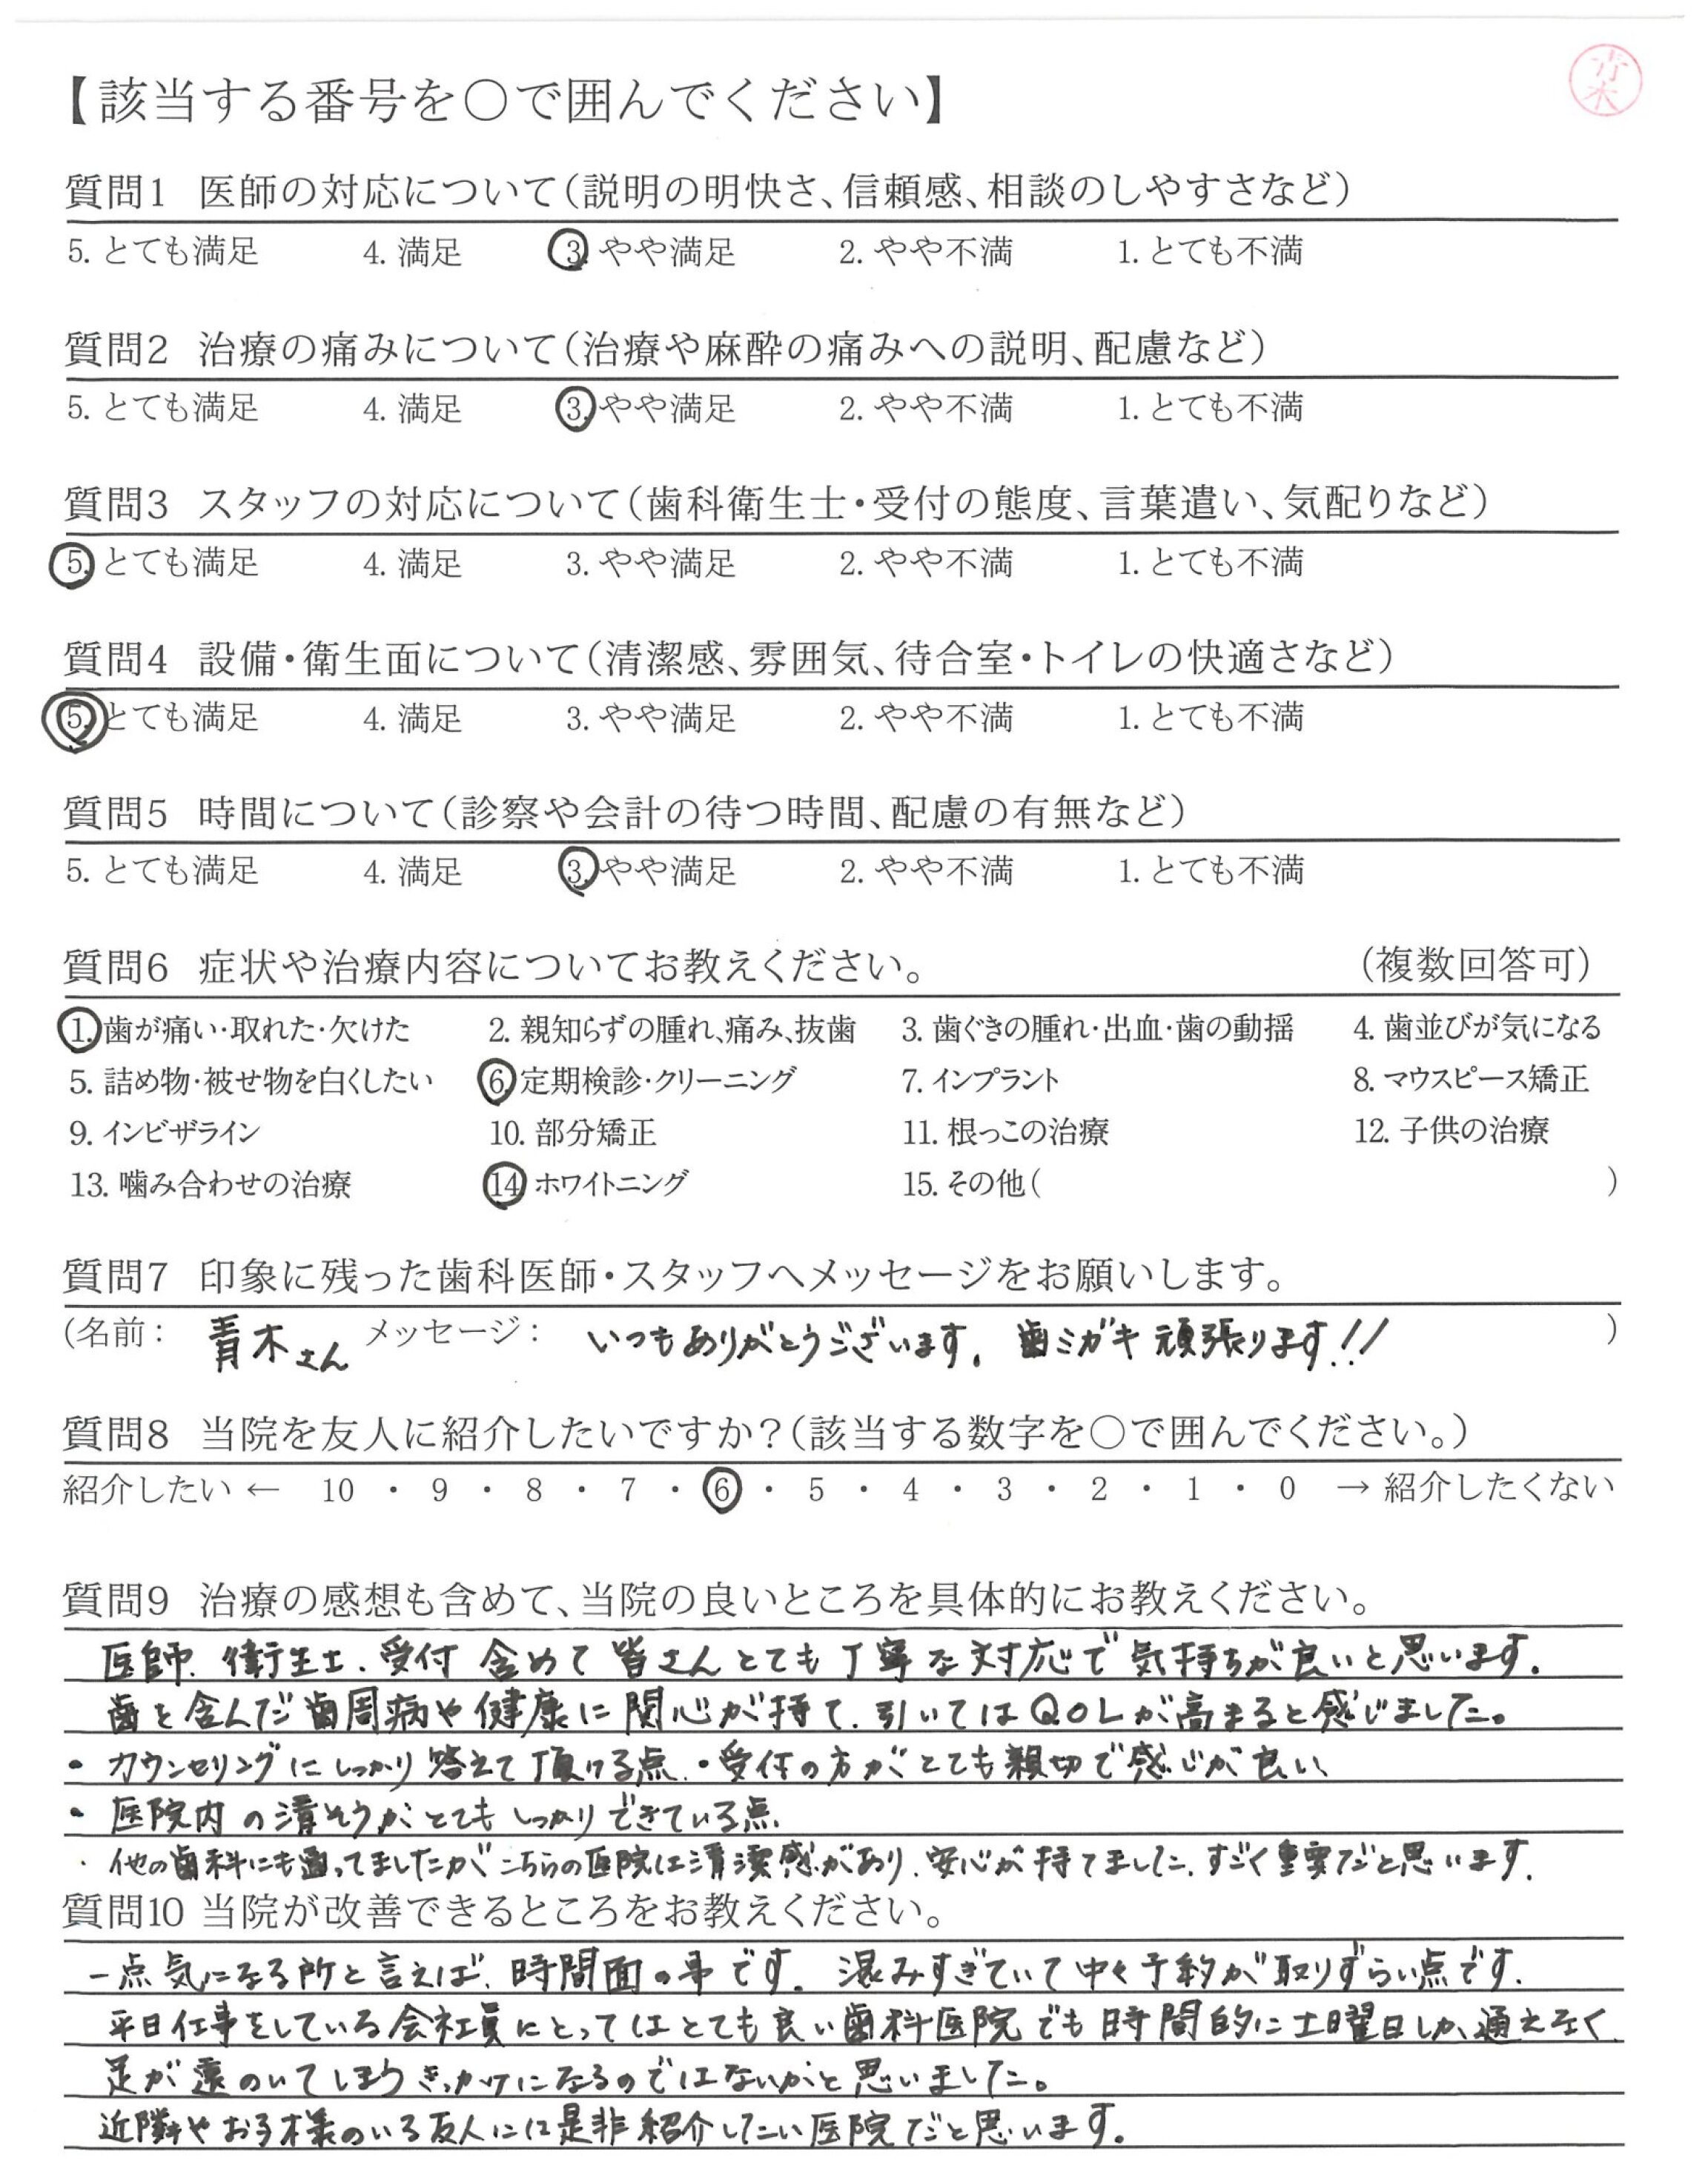 青木
【該当する番号を〇で囲んでください】
質問1 医師の対応について(説明の明快さ、信頼感、相談のしやすさなど)
5. とても満足 4. 満足 3. やや満足 2. やや不満 1. とても不満
質問2 治療の痛みについて(治療や麻酔の痛みへの説明、配慮など)
5. とても満足 4. 満足 3. やや満足 2. やや不満 1. とても不満
質問3 スタッフの対応について(歯科衛生士・受付の態度、言葉遣い、気配りなど)
5. とても満足 4. 満足 3. やや満足 2. やや不満 1. とても不満
質問4 設備・衛生面について(清潔感、雰囲気、待合室・トイレの快適さなど)
5. とても満足 4. 満足 3. やや満足 2. やや不満 1. とても不満
質問5 時間について(診察や会計の待つ時間、配慮の有無など)
5. とても満足 4. 満足 3. やや満足 2. やや不満 1. とても不満
質問6 症状や治療内容についてお教えください。 (複数回答可)
1. 歯が痛い・取れた・欠けた 2. 親知らずの腫れ、痛み、抜歯 3. 歯ぐきの腫れ・出血・歯の動揺 4. 歯並びが気になる
5. 詰め物・被せ物を白くしたい 6. 定期検診・クリーニング 7. インプラント 8. マウスピース矯正
9. インビザライン 10. 部分矯正 11. 根っこの治療 12. 子供の治療
13. 噛み合わせの治療 14. ホワイトニング 15. その他( )
質問7 印象に残った歯科医師・スタッフへメッセージをお願いします。
(名前: 青木さん メッセージ: いつもありがとうございます。歯ミガキ頑張ります!! )
質問8 当院を友人に紹介したいですか?(該当する数字を〇で囲んでください。)
紹介したい ← 10 ・ 9 ・ 8 ・ 7 ・ 6 ・ 5 ・ 4 ・ 3 ・ 2 ・ 1 ・ 0 → 紹介したくない
質問9 治療の感想も含めて、当院の良いところを具体的にお教えください。
医師、衛生士、受付 含めて皆さんとても丁寧な対応で気持ちが良いと思います。
歯を含んだ歯周病や健康に関心が持て、引いてはQOLが高まると感じました。
・カウンセリングにしっかり答えて頂ける点、・受付の方がとても親切で感じが良い、
・医院内の清そうがとてもしっかりできている点、
・他の歯科にも通ってましたがこちらの医院は清潔感があり、安心が持てました、すごく重要だと思います。
質問10 当院が改善できるところをお教えください。
一点気になる所と言えば、時間面の事です。混みすぎていて中々予約が取りずらい点です。
平日仕事をしている会社員にとってはとても良い歯科医院でも時間的に土曜日しか通えなく、
足が遠のいてしまうきっかけになるのではないかと思いました。
近隣やお子様のいる友人には是非紹介したい医院だと思います。